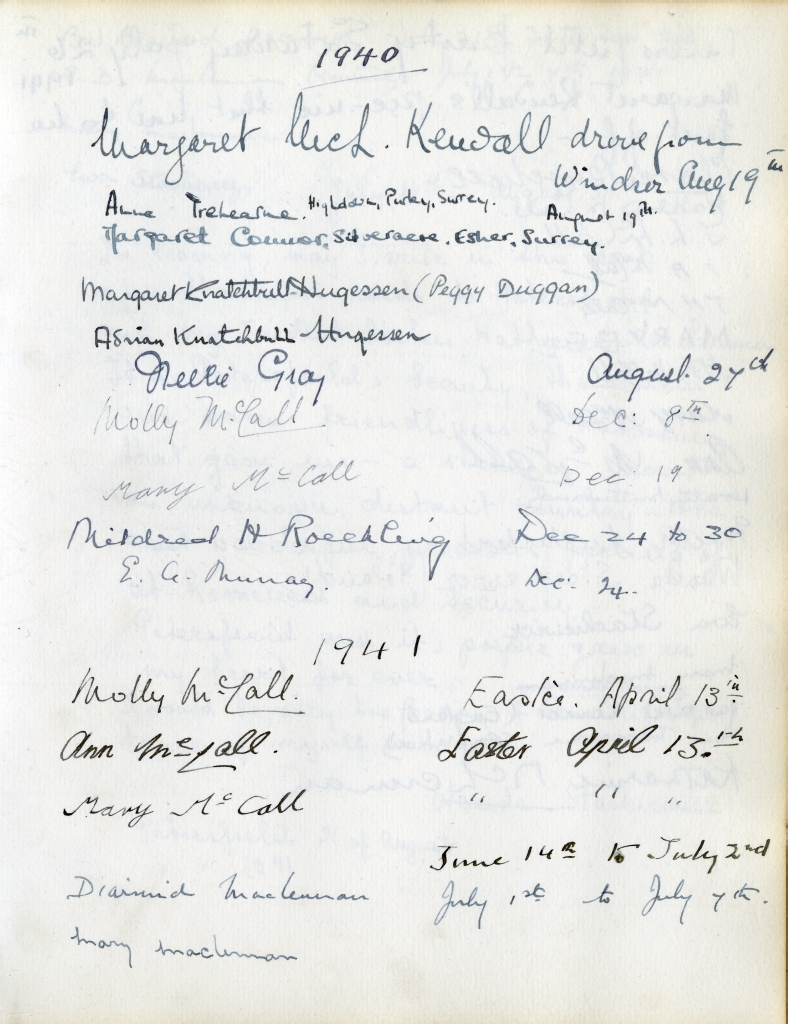 1940
Margaret McL. Kendall drove from
Windsor Aug 19th
Anne Trehearne. Highdown, Purley, Surrey. August 19th.
Margaret Connor, Silveracre, Esher, Surrey.
Margaret Knatchbull-Hugessen (Peggy Duggan)
Adrian Knatchbull Hugessen
Nellie Gray August 27th
Molly McCall Dec: 8th
Mary McCall Dec 19
Mildred H Roechling Dec 24 to 30
E. G. Murray. Dec: 24.
1941
Molly McCall. Easter. April 13th
Ann McCall. Easter April 13th
Mary McCall " " "
June 14th to July 2nd
Diarmid Maclennan July 1st to July 7th.
Mary Maclennan